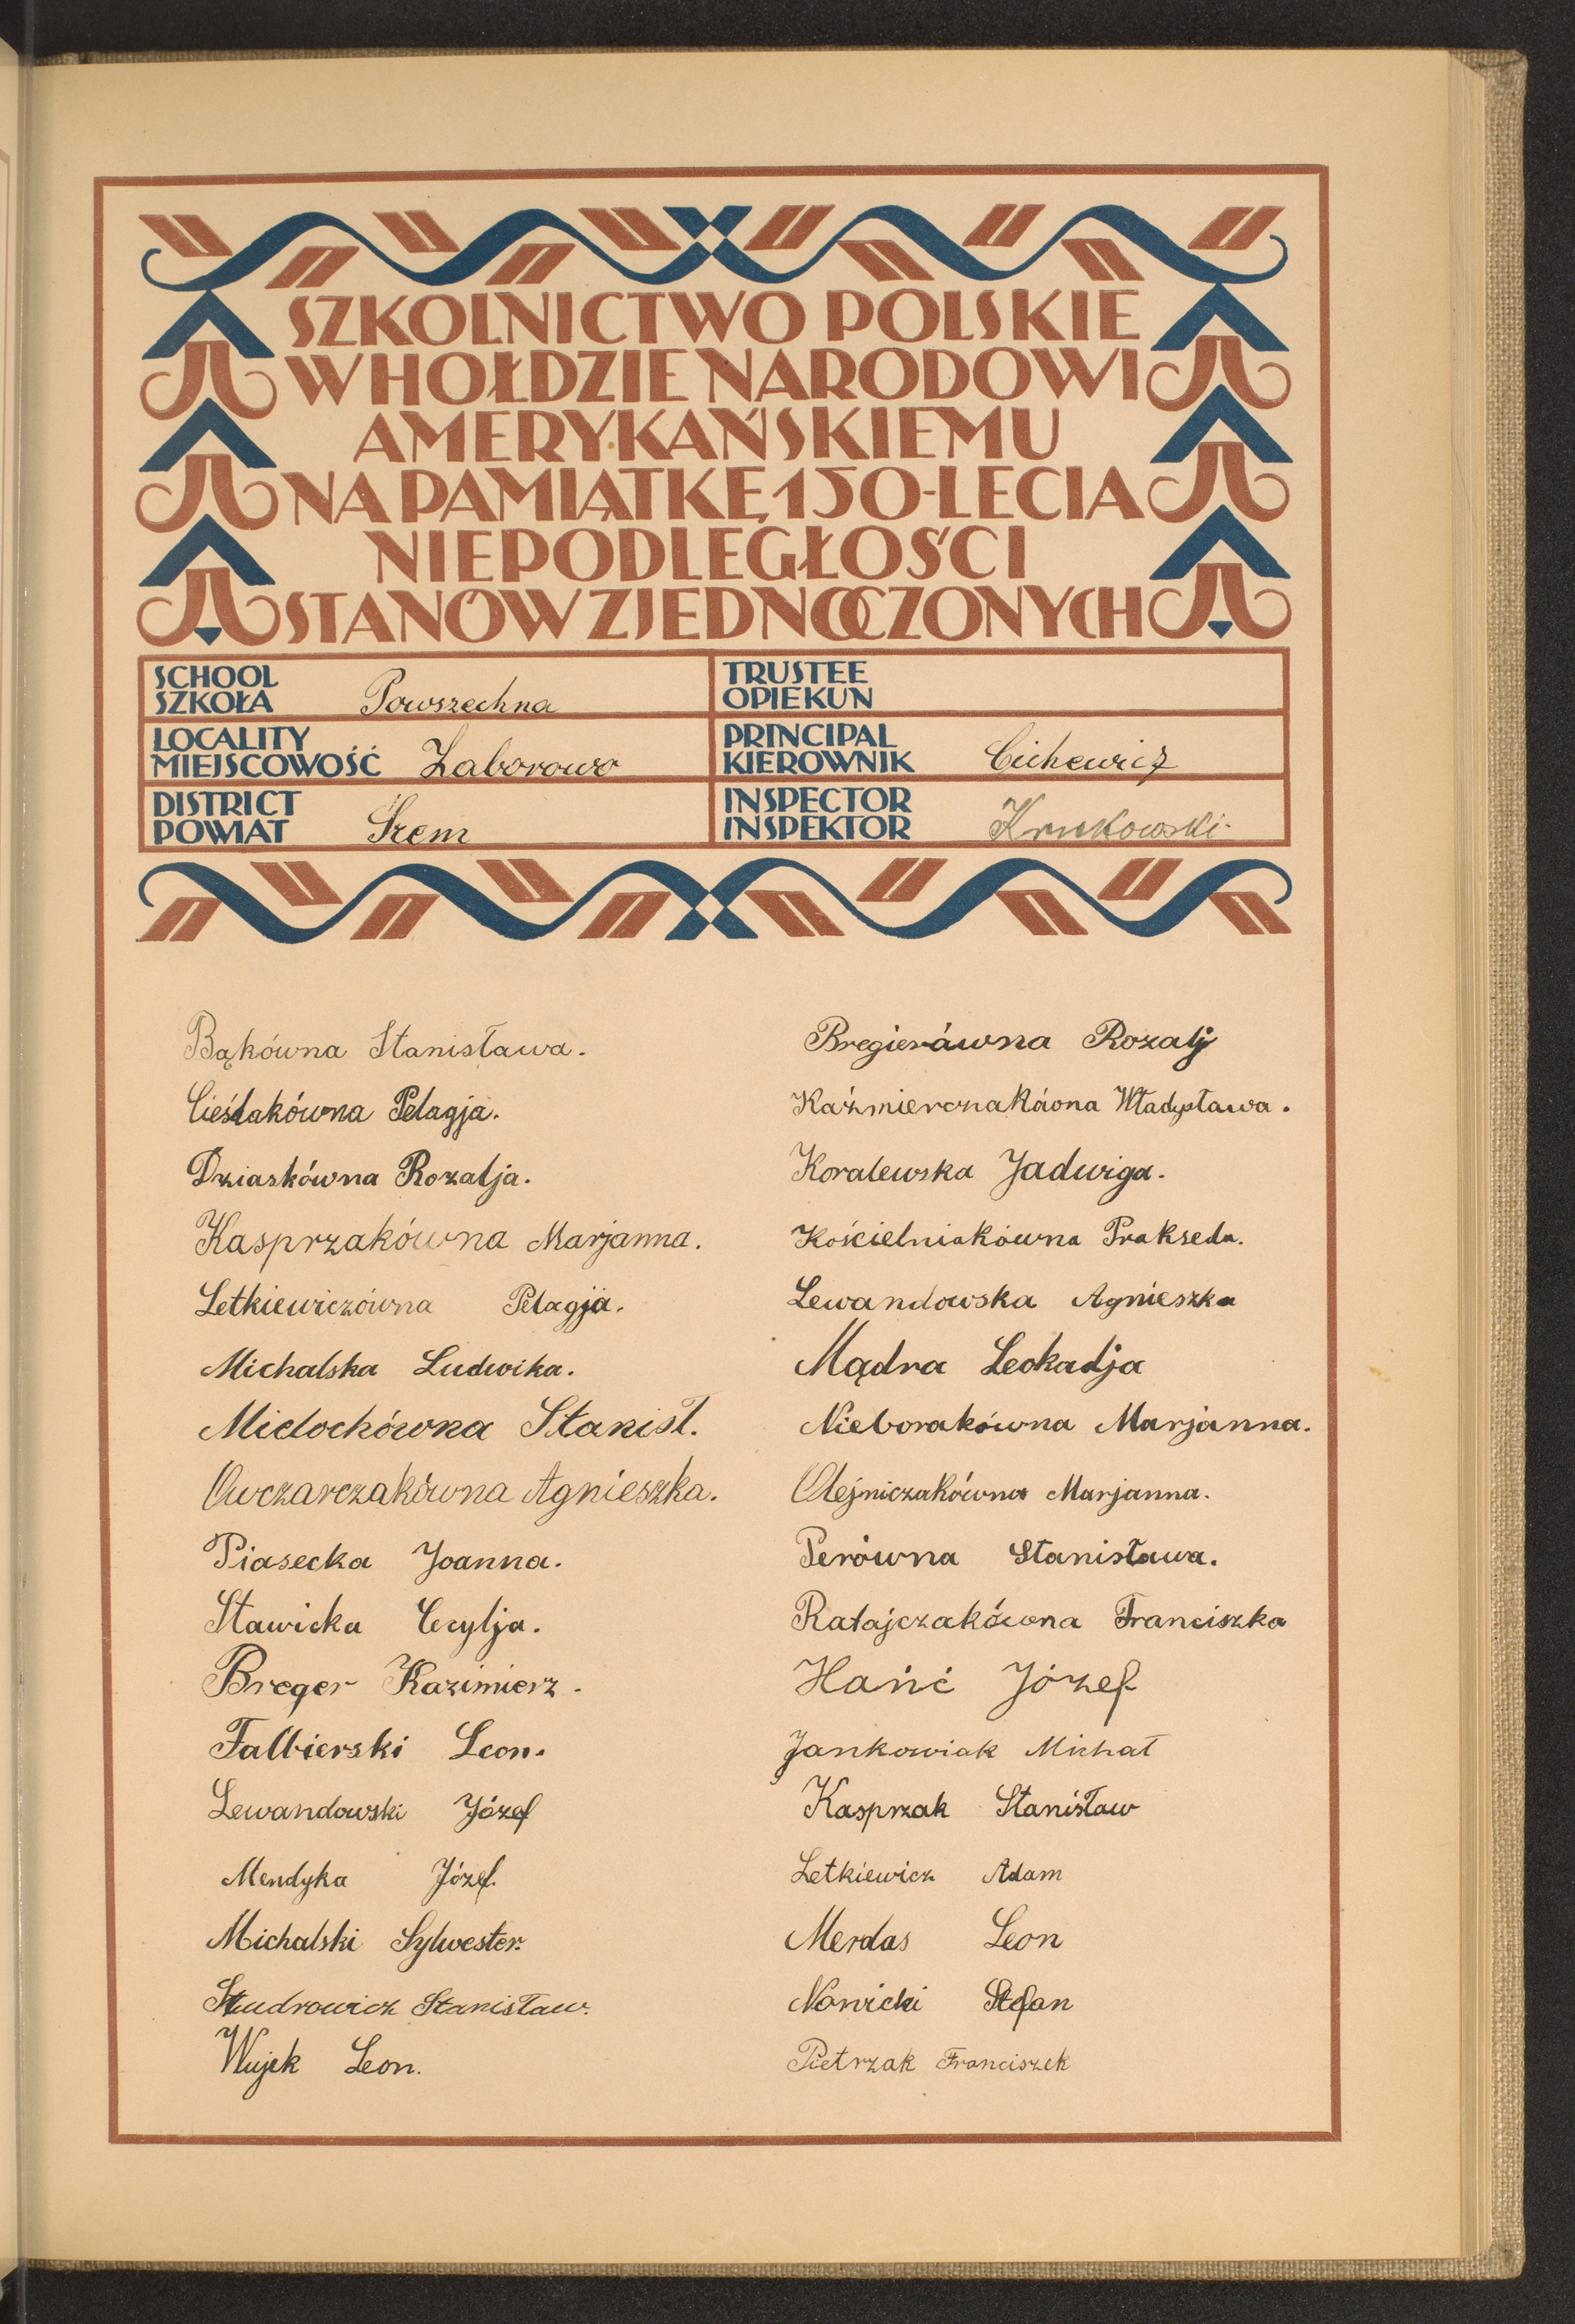 SZKOLNICTWO POLSKIE
W HOŁDZIE NARODOWI
AMERYKAŃSKIEMU
NA PAMIĄTKĘ 150-LECIA
NIEPODLEGŁOŚCI
STANÓW ZJEDNOCZONYCH
SCHOOL
SZKOŁA Powszechna
TRUSTEE
OPIEKUN
LOCALITY
MIEJSCOWOŚĆ Zaborowo
PRINCIPAL
KIEROWNIK Cichewicz
DISTRICT
POWIAT Śrem
INSPECTOR
INSPEKTOR Krukowski
Bąkówna Stanisława.
Cieślakówna Pelagja.
Dziaskówna Rozalja.
Kasprzakówna Marjanna.
Letkiewiczówna Pelagja.
Michalska Ludwika.
Mielochówna Stanisł.
Owczarczakówna Agnieszka.
Piasecka Joanna.
Stawicka Cecylja.
Breger Kazimierz.
Falbierski Leon.
Lewandowski Józef
Mendyka Józef.
Michalski Sylwester.
Studrowicz Stanisław.
Wujek Leon.
Bregierówna Rozalj
Kaźmierczakóona Władysława.
Koralewska Jadwiga.
Kościelniakówna Prakseda.
Lewandowska Agnieszka
Mądra Leokadja
Nieborakówna Marjanna.
Olejniczakówna Marjanna.
Perówna Stanisława.
Ratajczakówna Franciszka
Hańć Józef
Jankowiak Michał
Kasprzak Stanisław
Letkiewicz Adam
Merdas Leon
Nowicki Stefan
Pietrzak Franciszek